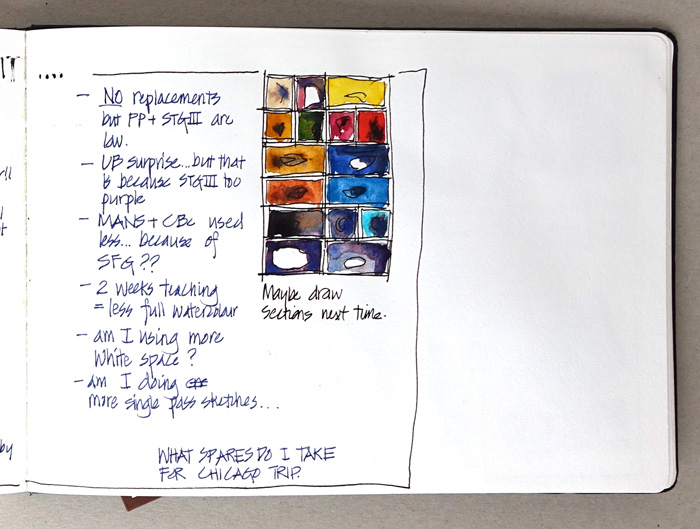 IT ....
- NO replacements
but PP + STGIII are
low.
- UB surprise... but that
is because STGIII too
purple
- MANS + CBC used
less... because of
SFG??
- 2 weeks teaching
= less full watercolour
- am I using more
white space?
- am I doing
more single pass sketches...
Maybe draw
sections next time.
WHAT SPARES DO I TAKE
FOR CHICAGO TRIP.
by